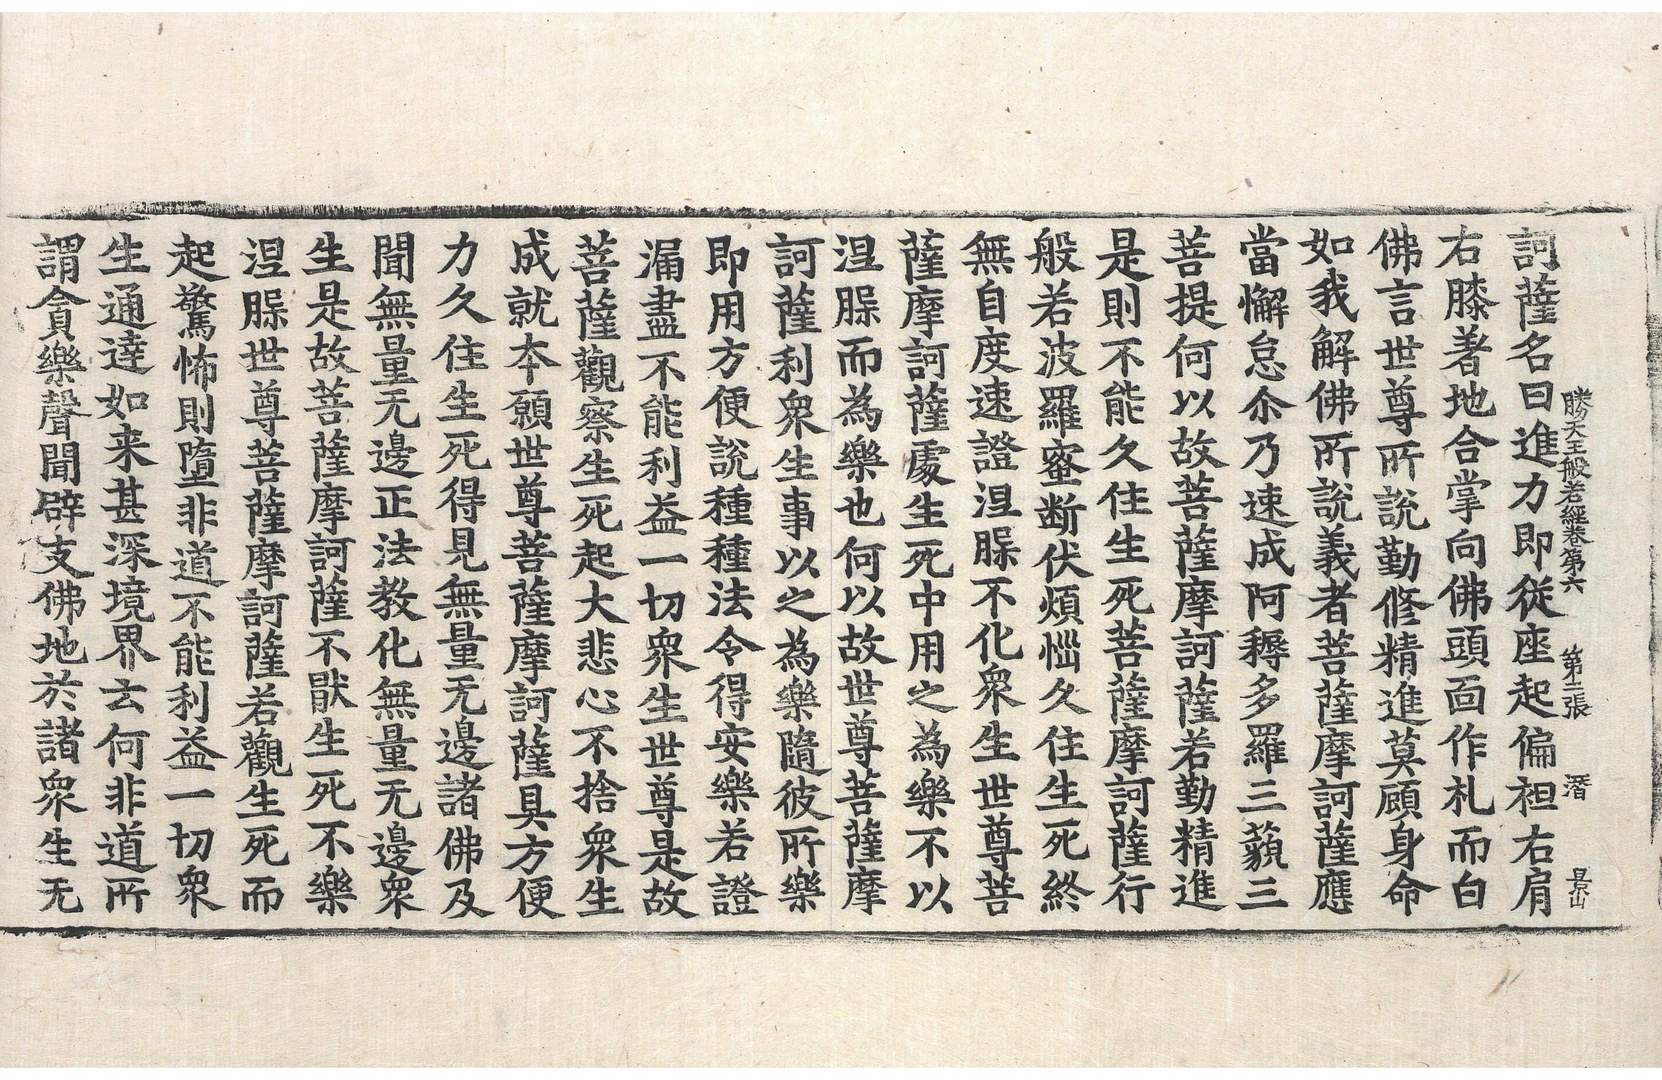 勝天王般若經卷第六 第二張 潛
訶薩名曰進力即從座起偏袒右肩
右膝著地合掌向佛頭面作礼而白
佛言世尊所說勤修精進莫顧身命
如我解佛所說義者菩薩摩訶薩應
當懈怠尒乃速成阿耨多羅三藐三
菩提何以故菩薩摩訶薩若勤精進
是則不能久住生死菩薩摩訶薩行
般若波羅蜜断伏煩惱久住生死終
無自度速證涅槃不化衆生世尊菩
薩摩訶薩處生死中用之為樂不以
涅槃而為樂也何以故世尊菩薩摩
訶薩利衆生事以之為樂隨彼所樂
即用方便說種種法令得安樂若證
漏盡不能利益一切衆生世尊是故
菩薩觀察生死起大悲心不捨衆生
成就本願世尊菩薩摩訶薩具方便
力久住生死得見無量无邊諸佛及
聞無量无邊正法教化無量无邊衆
生是故菩薩摩訶薩不猒生死不樂
涅槃世尊菩薩摩訶薩若觀生死而
起驚怖則墮非道不能利益一切衆
生通達如来甚深境界云何非道所
謂貪樂聲聞辟支佛地於諸衆生无